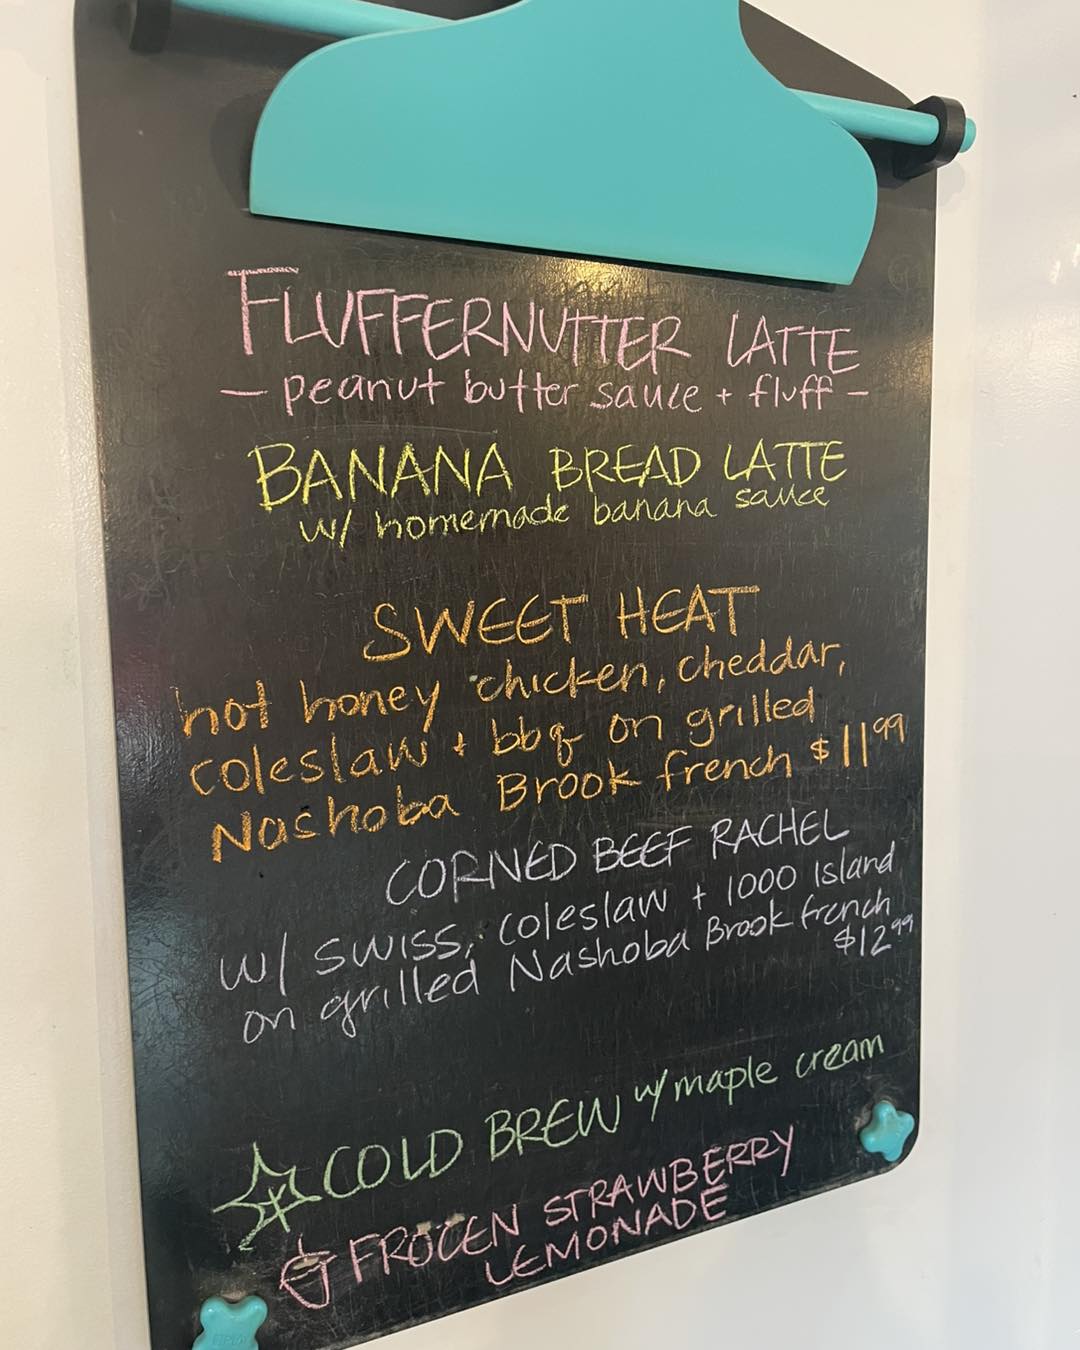 FLUFFERNUTTER LATTE
- peanut butter sauce + fluff -
BANANA BREAD LATTE
w/ homemade banana sauce
SWEET HEAT
hot honey chicken, cheddar,
coleslaw + bbq on grilled
Nashoba Brook french $11.99
CORNED BEEF RACHEL
w/ swiss, coleslaw + 1000 Island
on grilled Nashoba Brook french
$12.99
COLD BREW w/ maple cream
FROZEN STRAWBERRY
LEMONADE